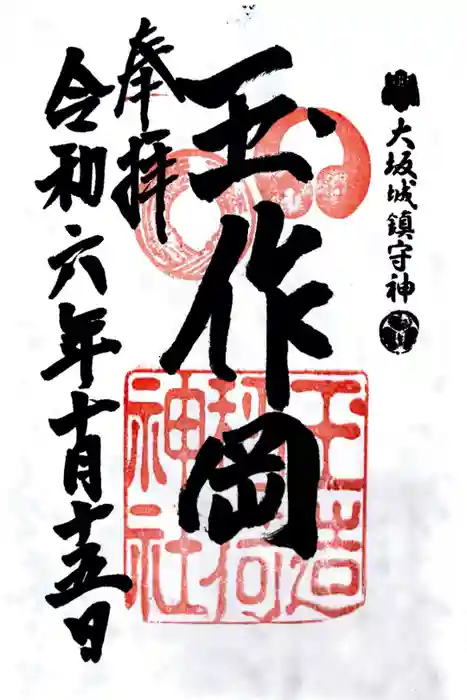 大坂城鎮守神
玉作岡
玉造
稲荷
神社
奉拝
令和六年十月十五日